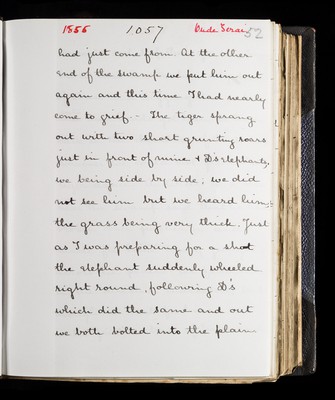 1855 1057 Oude Terai 52
had just come from. At the other
end of the swamp we put him out
again and this time I had nearly
come to grief - The tiger sprang
out with two short grunting roars
just in front of mine & D's elephants,
we being side by side; we did
not see him but we heard him;
the grass being very thick. Just
as I was preparing for a shot
the elephant suddenly wheeled
right round, following D's
which did the same and out
we both bolted into the plain